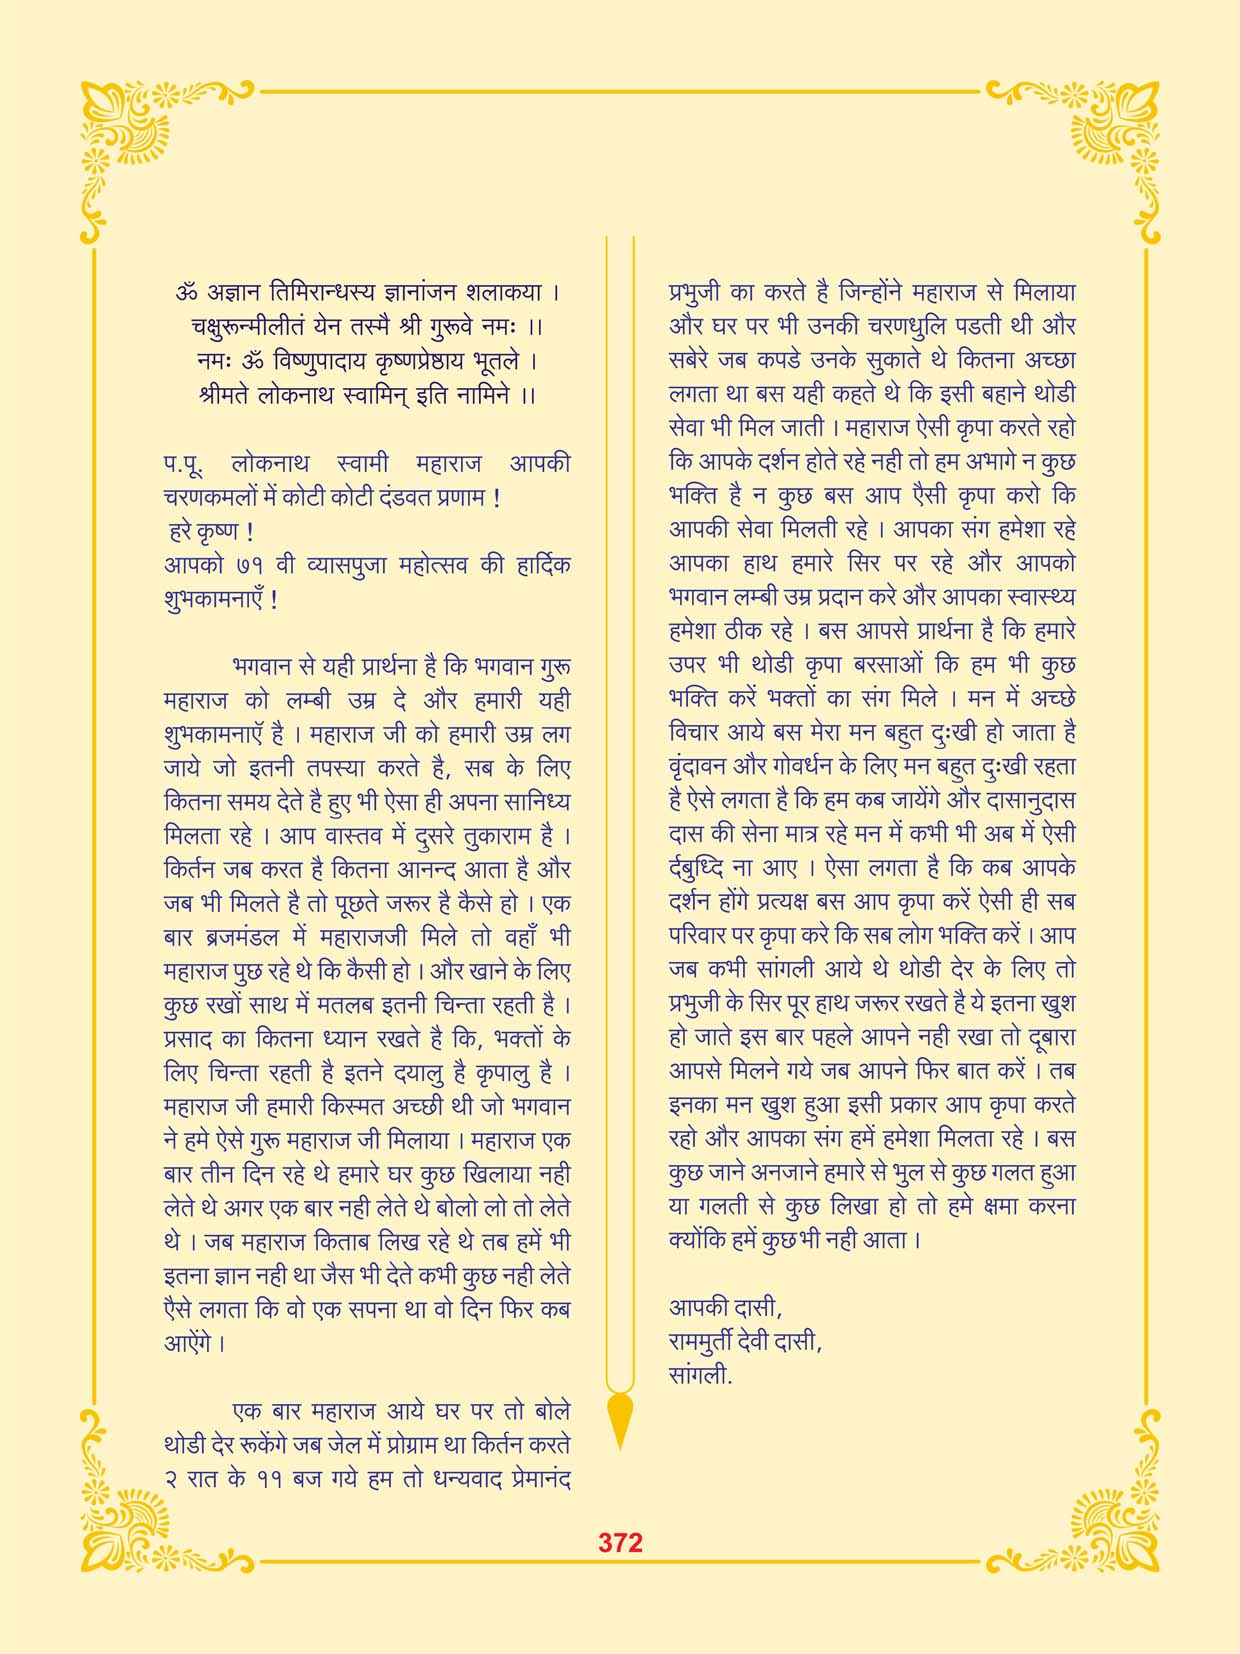 ॐ अज्ञान तिमिरान्धस्य ज्ञानांजन शलाकया ।
चक्षुरून्मीलीतं येन तस्मै श्री गुरूवे नमः ।।
नमः ॐ विष्णुपादाय कृष्णप्रेष्ठाय भूतले ।
श्रीमते लोकनाथ स्वामिन् इति नामिने ।।
प.पू. लोकनाथ स्वामी महाराज आपकी
चरणकमलों में कोटी कोटी दंडवत प्रणाम !
हरे कृष्ण !
आपको ७१ वी व्यासपुजा महोत्सव की हार्दिक
शुभकामनाएँ !
भगवान से यही प्रार्थना है कि भगवान गुरू
महाराज को लम्बी उम्र दे और हमारी यही
शुभकामनाऍ है । महाराज जी को हमारी उम्र लग
जाये जो इतनी तपस्या करते है, सब के लिए
कितना समय देते है हुए भी ऐसा ही अपना सानिध्य
मिलता रहे । आप वास्तव में दुसरे तुकाराम है ।
किर्तन जब करत है कितना आनन्द आता है और
जब भी मिलते है तो पूछते जरूर है कैसे हो । एक
बार ब्रजमंडल में महाराजजी मिले तो वहाँ भी
महाराज पुछ रहे थे कि कैसी हो । और खाने के लिए
कुछ रखों साथ में मतलब इतनी चिन्ता रहती है ।
प्रसाद का कितना ध्यान रखते है कि, भक्तों के
लिए चिन्ता रहती है इतने दयालु है कृपालु है ।
महाराज जी हमारी किस्मत अच्छी थी जो भगवान
ने हमे ऐसे गुरू महाराज जी मिलाया । महाराज एक
बार तीन दिन रहे थे हमारे घर कुछ खिलाया नही
लेते थे अगर एक बार नही लेते थे बोलो लो तो लेते
थे । जब महाराज किताब लिख रहे थे तब हमें भी
इतना ज्ञान नही था जैस भी देते कभी कुछ नही लेते
एैसे लगता कि वो एक सपना था वो दिन फिर कब
आऐंगे ।
एक बार महाराज आये घर पर तो बोले
थोडी देर रूकेंगे जब जेल में प्रोग्राम था किर्तन करते
२ रात के ११ बज गये हम तो धन्यवाद प्रेमानंद
प्रभुजी का करते है जिन्होंने महाराज से मिलाया
और घर पर भी उनकी चरणधुलि पडती थी और
सबेरे जब कपडे उनके सुकाते थे कितना अच्छा
लगता था बस यही कहते थे कि इसी बहाने थोडी
सेवा भी मिल जाती । महाराज ऐसी कृपा करते रहो
कि आपके दर्शन होते रहे नही तो हम अभागे न कुछ
भक्ति है न कुछ बस आप एैसी कृपा करो कि
आपकी सेवा मिलती रहे । आपका संग हमेशा रहे
आपका हाथ हमारे सिर पर रहे और आपको
भगवान लम्बी उम्र प्रदान करे और आपका स्वास्थ्य
हमेशा ठीक रहे । बस आपसे प्रार्थना है कि हमारे
उपर भी थोडी कृपा बरसाओं कि हम भी कुछ
भक्ति करें भक्तों का संग मिले । मन में अच्छे
विचार आये बस मेरा मन बहुत दुःखी हो जाता है
वृंदावन और गोवर्धन के लिए मन बहुत दुःखी रहता
है ऐसे लगता है कि हम कब जायेंगे और दासानुदास
दास की सेना मात्र रहे मन में कभी भी अब में ऐसी
र्दबुध्दि ना आए । ऐसा लगता है कि कब आपके
दर्शन होंगे प्रत्यक्ष बस आप कृपा करें ऐसी ही सब
परिवार पर कृपा करे कि सब लोग भक्ति करें । आप
जब कभी सांगली आये थे थोडी देर के लिए तो
प्रभुजी के सिर पूर हाथ जरूर रखते है ये इतना खुश
हो जाते इस बार पहले आपने नही रखा तो दूबारा
आपसे मिलने गये जब आपने फिर बात करें । तब
इनका मन खुश हुआ इसी प्रकार आप कृपा करते
रहो और आपका संग हमें हमेशा मिलता रहे । बस
कुछ जाने अनजाने हमारे से भुल से कुछ गलत हुआ
या गलती से कुछ लिखा हो तो हमे क्षमा करना
क्योंकि हमें कुछ भी नही आता ।
आपकी दासी,
राममुर्ती देवी दासी,
सांगली.
372